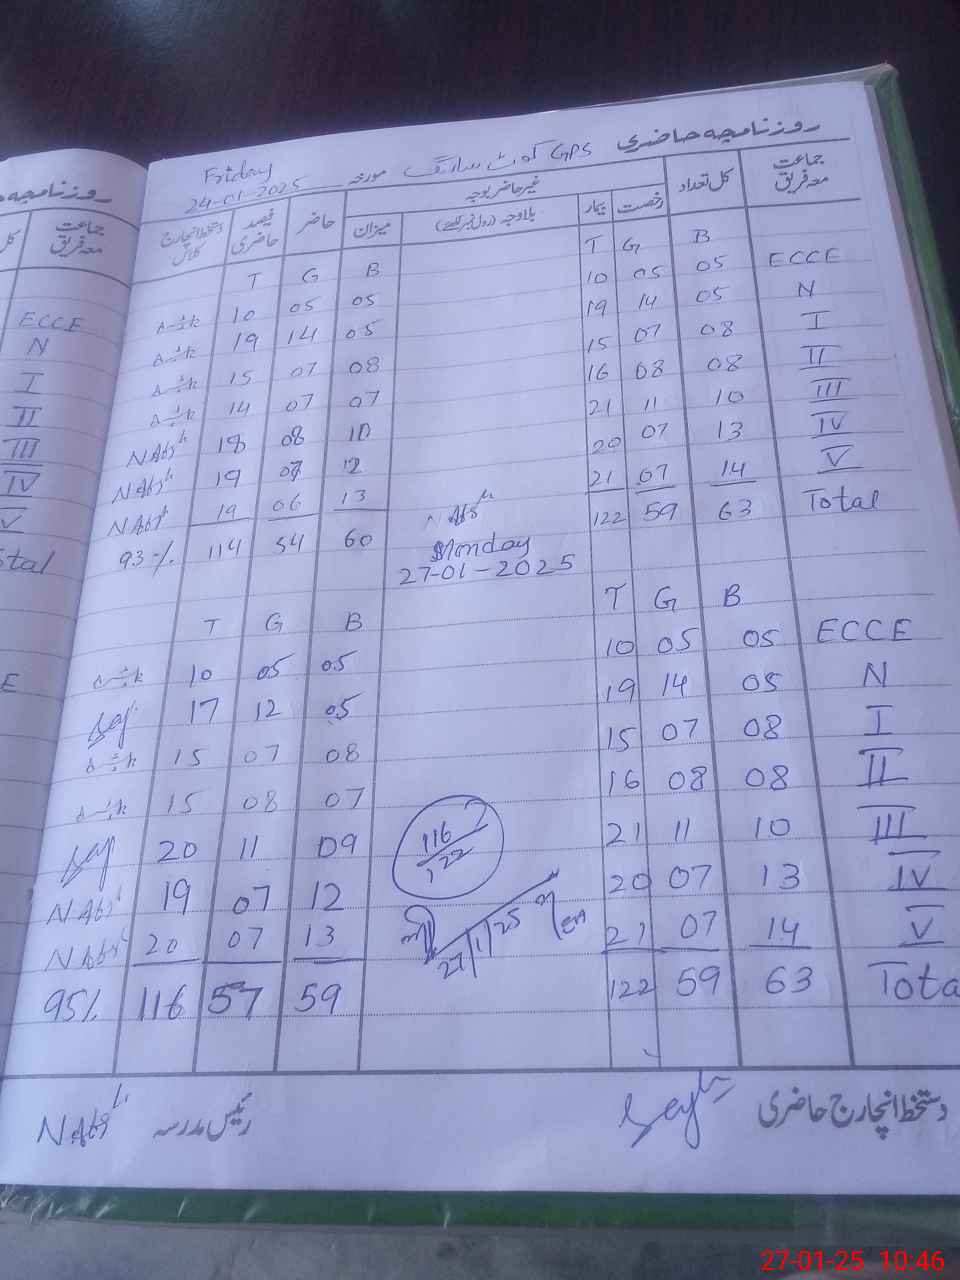 روزنامچہ حاضری GPS کوٹ سارنگ مورخہ Friday 24-01-2025
جماعت معہ فریق کل تعداد غیر حاضر بوجہ حاضر فیصد حاضری دستخط انچارج کلاس
رخصت بیمار بلا وجہ (رول نمبر لکھیں) میزان
B G T B G T
ECCE 05 05 10 05 05 10
N 05 14 19 05 14 19
I 08 07 15 08 07 15
II 08 08 16 07 07 14
III 10 11 21 10 08 18
IV 13 07 20 12 07 19
V 14 07 21 13 06 19
Total 63 59 122 60 54 114 93%
Monday
27-01-2025
B G T B G T
ECCE 05 05 10 05 05 10
N 05 14 19 05 12 17
I 08 07 15 08 07 15
II 08 08 16 07 08 15
III 10 11 21 09 11 20
IV 13 07 20 12 07 19
V 14 07 21 13 07 20
Total 63 59 122 59 57 116 95%
116/122
27/1/25
دستخط انچارج حاضری رئیس مدرسہ
روزنامچہ
جماعت معہ فریق
ECCE
N
I
II
III
IV
V
27-01-25 10:46